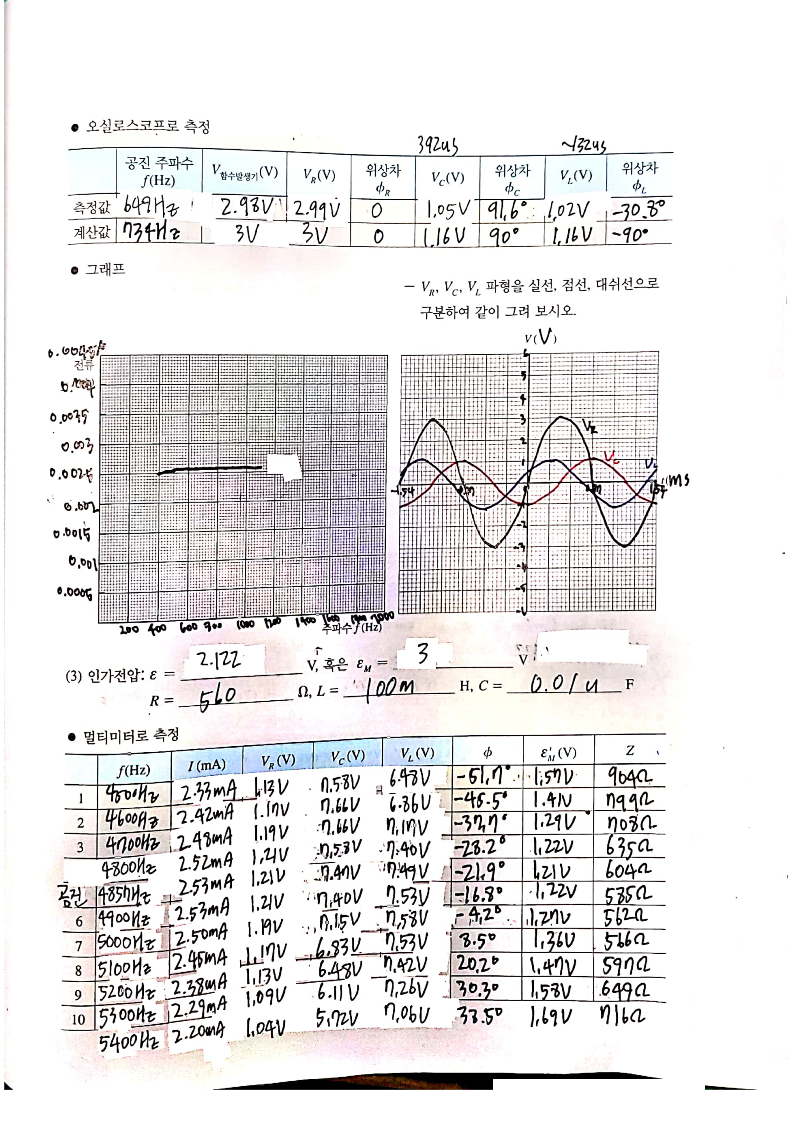 ● 오실로스코프로 측정
392us ~132us
공진 주파수 f(Hz) V함수발생기(V) VR(V) 위상차 ϕR VC(V) 위상차 ϕC VL(V) 위상차 ϕL
측정값 649Hz 2.98V 2.99V 0 1.05V 91.6° 1.02V -30.8°
계산값 734Hz 3V 3V 0 1.16V 90° 1.16V -90°
● 그래프
― VR, VC, VL 파형을 실선, 점선, 대쉬선으로
구분하여 같이 그려 보시오.
V(V)
전류
0.0035
0.003
0.0025
0.002
0.0015
0.001
0.0005
200 400 600 800 1000 1200 1400 1600 1800 2000
주파수 f(Hz)
6
5
4
3
2
1
-1
-2
-3
-4
-5
VR
VL
-1.54
ms
(3) 인가전압: ε = 2.122 V, 혹은 εM = 3 V
R = 560 Ω, L = 100m H, C = 0.01u F
● 멀티미터로 측정
f(Hz) I(mA) VR(V) VC(V) VL(V) ϕ ε′M(V) Z
1 4500Hz 2.33mA 1.13V 7.58V 6.48V -51.7° 1.57V 904Ω
2 4600Hz 2.42mA 1.17V 7.66V 6.86V -45.5° 1.41V 799Ω
3 4700Hz 2.48mA 1.19V 7.66V 7.17V -37.7° 1.29V 708Ω
4800Hz 2.52mA 1.21V 7.58V 7.40V -28.2° 1.22V 635Ω
공진 4857Hz 2.53mA 1.21V 7.47V 7.49V -21.9° 1.21V 604Ω
6 4900Hz 2.53mA 1.21V 7.40V 7.53V -16.8° 1.22V 585Ω
7 5000Hz 2.50mA 1.19V 7.15V 7.58V -4.2° 1.27V 562Ω
8 5100Hz 2.45mA 1.17V 6.83V 7.53V 8.5° 1.36V 566Ω
9 5200Hz 2.38mA 1.13V 6.48V 7.42V 20.2° 1.47V 597Ω
10 5300Hz 2.29mA 1.09V 6.11V 7.26V 30.3° 1.58V 649Ω
5400Hz 2.20mA 1.04V 5.72V 7.06V 38.5° 1.69V 716Ω